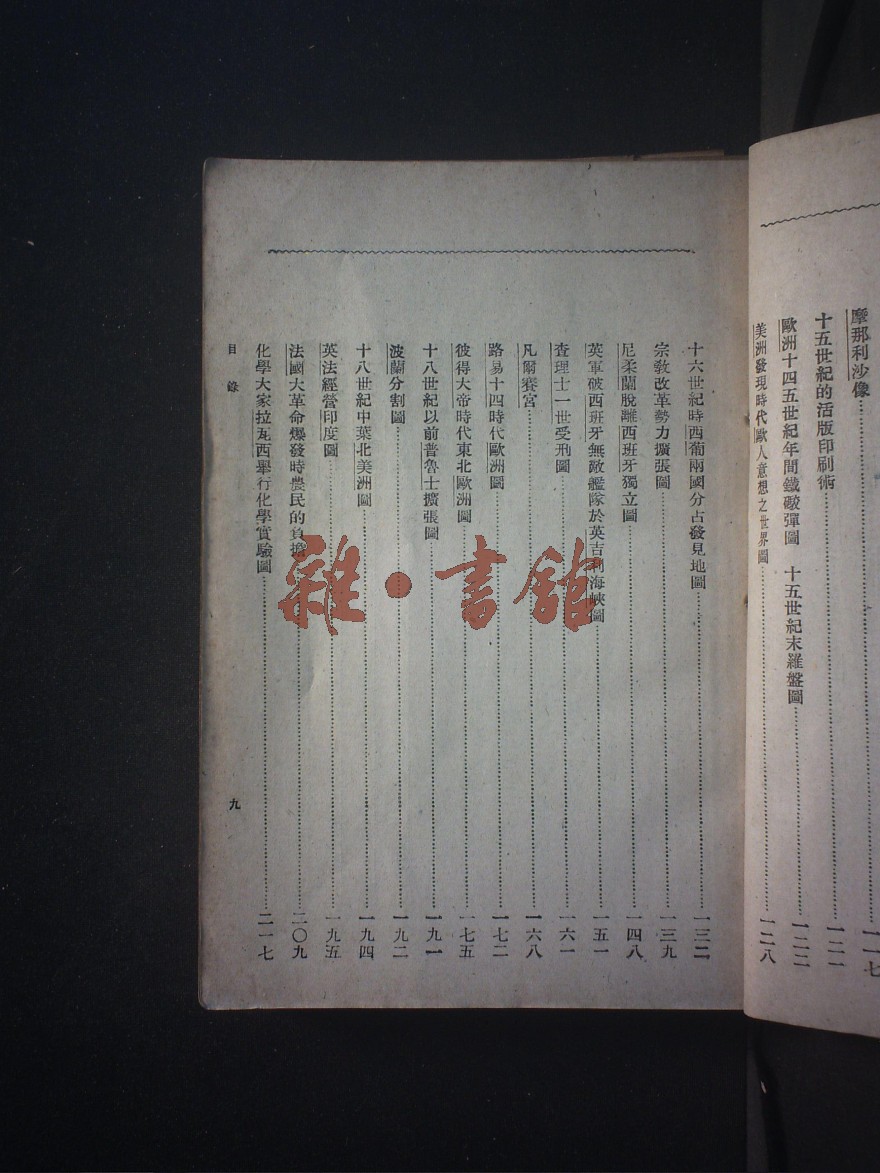 摩那利沙像……一一七
十五世紀的活版印刷術……一二一
歐洲十四五世紀年間鐵礮彈圖　十五世紀末羅盤圖……一二二
美洲發現時代歐人意想之世界圖……一二八
十六世紀時西葡兩國分占發見地圖……一三二
宗教改革勢力擴張圖……一三九
尼柔蘭脫離西班牙獨立圖……一四八
英軍破西班牙無敵艦隊於英吉利海峽圖……一五一
查理士一世受刑圖……一六一
凡爾賽宮……一六八
路易十四時代歐洲圖……一七二
彼得大帝時代東北歐洲圖……一七五
十八世紀以前普魯士擴張圖……一九一
波蘭分割圖……一九二
十八世紀中葉北美洲圖……一九四
英法經營印度圖……一九五
法國大革命爆發時農民的負擔……二〇九
化學大家拉瓦西舉行化學實驗圖……二一七
目錄
九
雜·書館